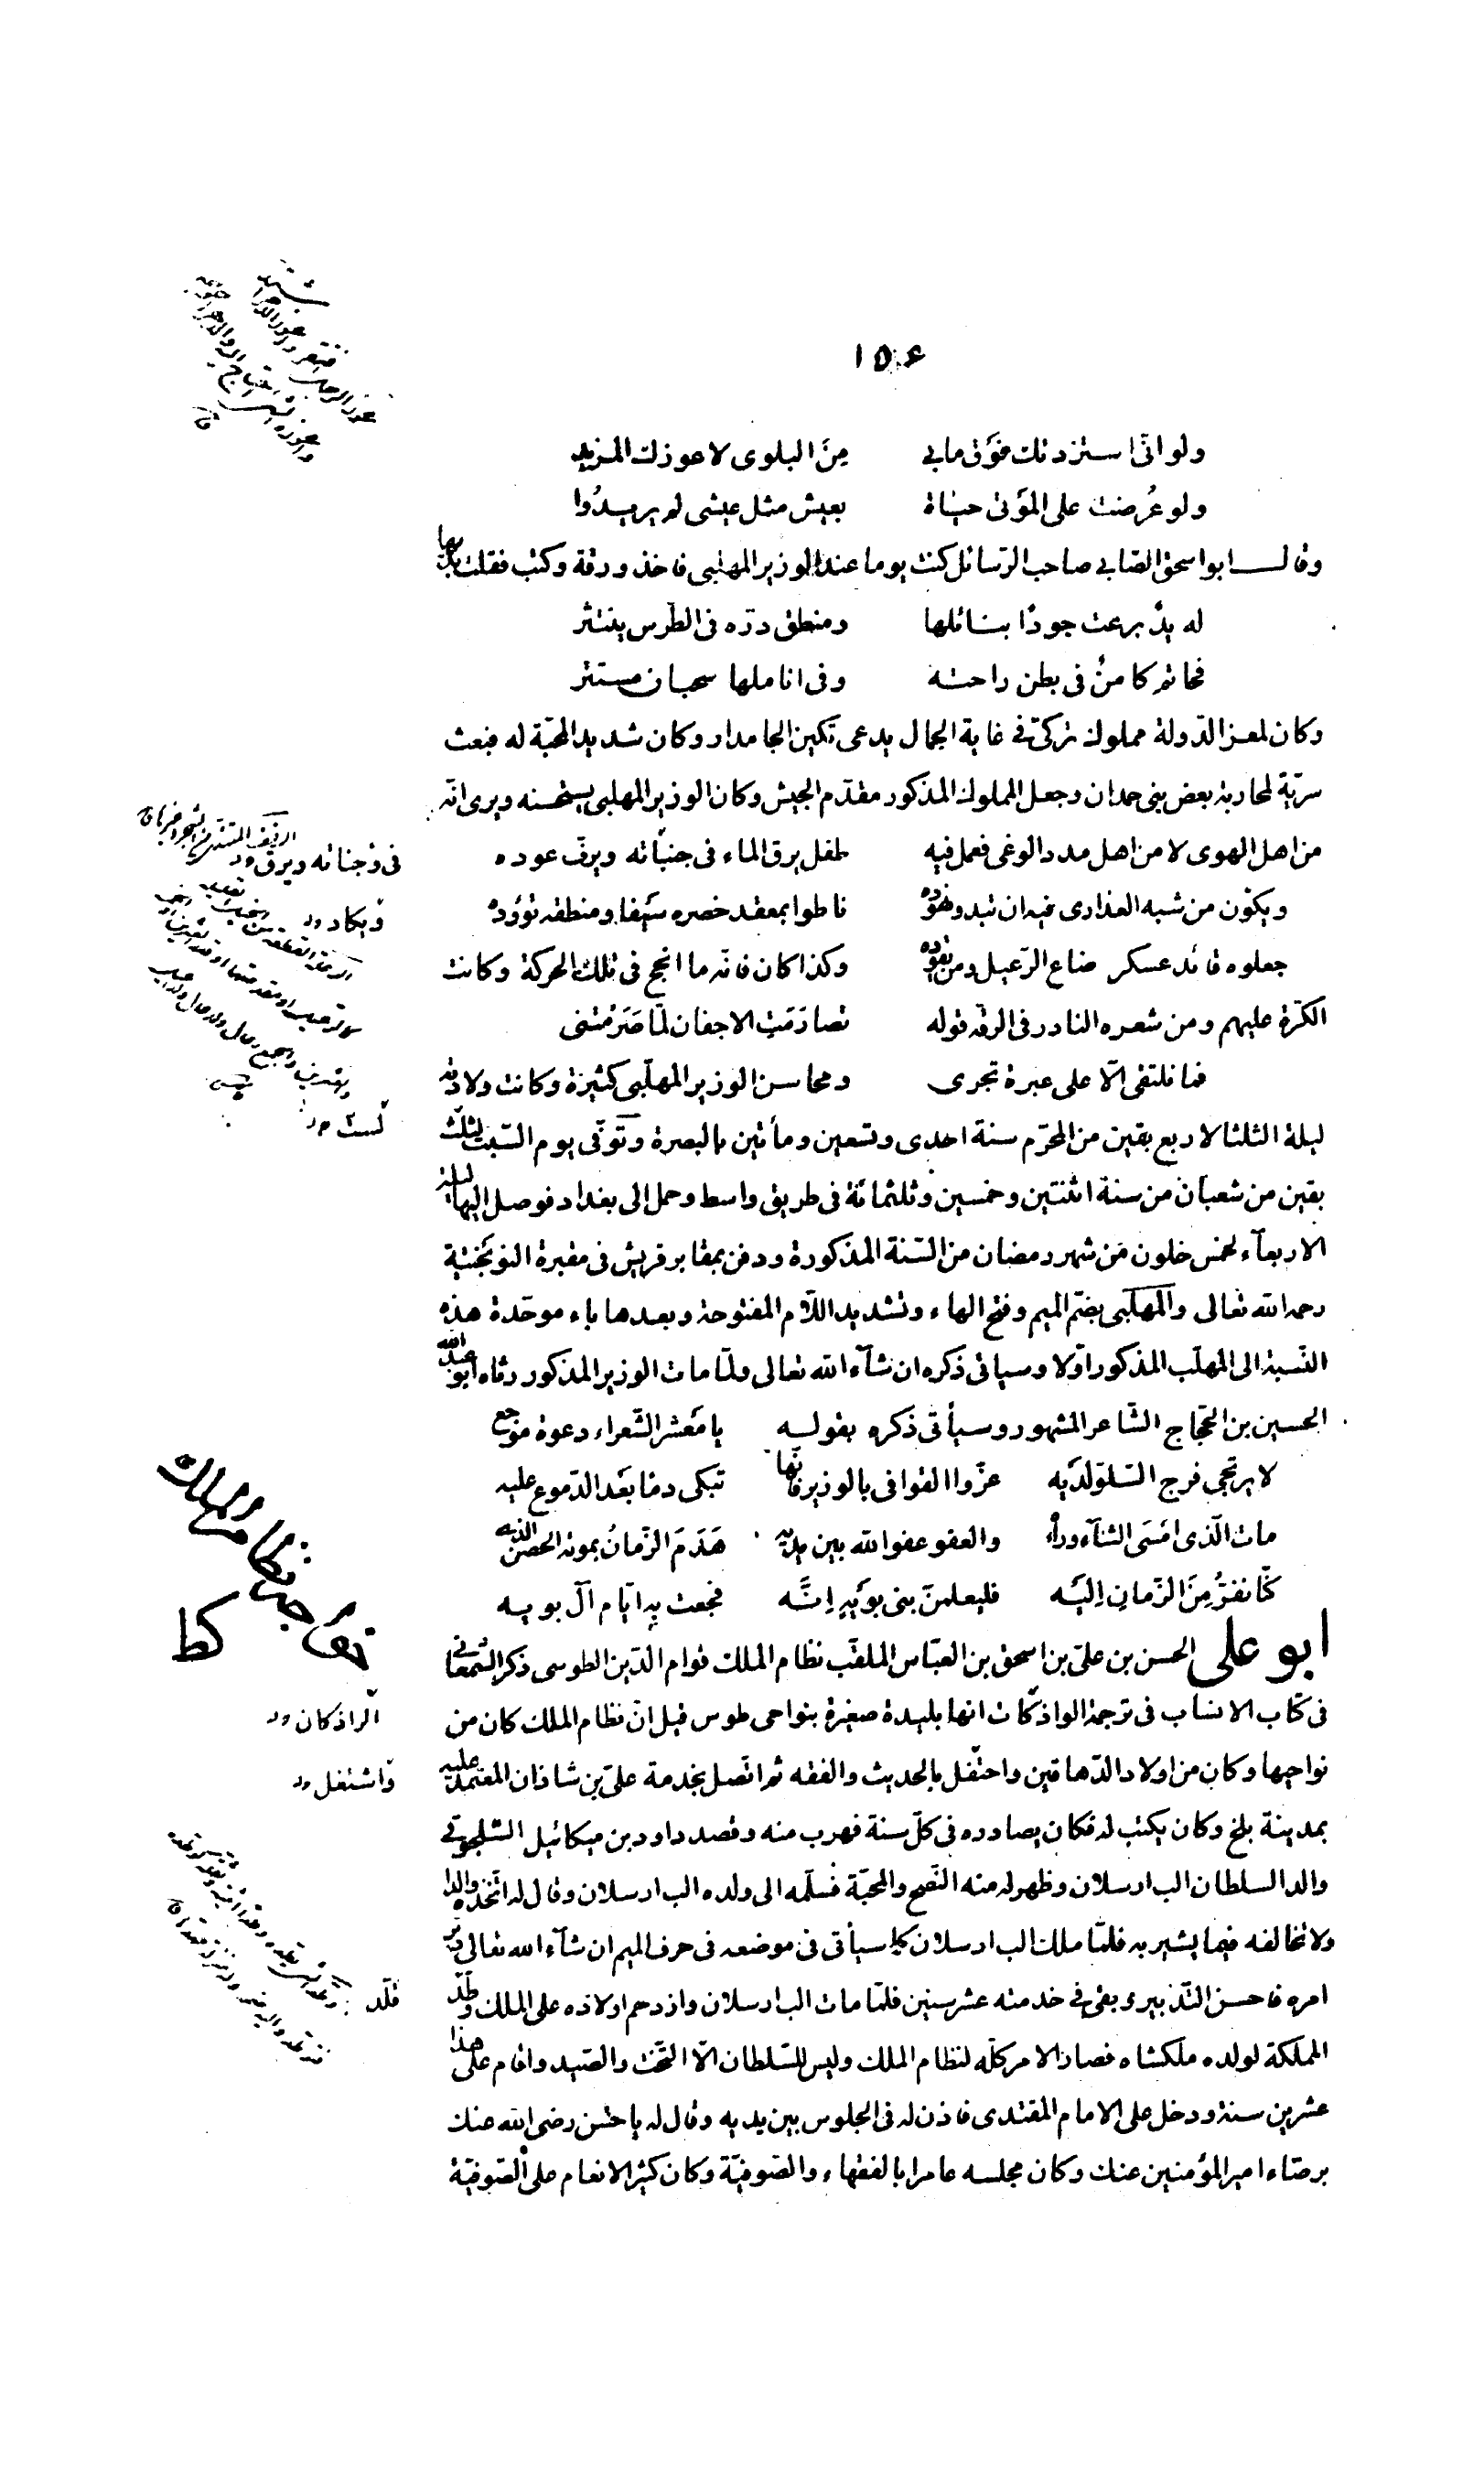 ١٥٤
ولو انّى استزدتك فوق مابي من البلوى لاعوزك المزيد
ولو عُرضت على الموتى حياة بعيش مثل عيشى لم يريدُوا
وقال ابو اسحق الصابي صاحب الرّسائل كنت يوما عند الوزير المهلبى فاخذ ورقة وكتب فقلت بديها
له يدٌ برعت جودًا بنائلها ومنطق درّه فى الطّرس ينتثر
فحاتم كامنٌ فى بطن راحته وفى اناملها سحبان مستتر
وكان لمعز الدّولة مملوك تركىّ فى غاية الجمال يدعى تكين الجامدار وكان شديد المحبّة له فبعث
سريّة لمحاربة بعض بنى حمدان وجعل المملوك المذكور مقدّم الجيش وكان الوزير المهلبى يستحسنه ويرى انّه
من اهل الهوى لا من اهل مدد الوغى فعمل فيه طفل يرق الماء فى جنباته ويرفّ عوده
ويكون من شبه العذارى فيه ان تبدو نهوده ناطوا بمعقد خصره سيفا ومنطقه تؤوده
جعلوه قائد عسكر ضاع الرّعيل ومن يقوده وكذا كان فانّه ما انجح فى تلك الحركة وكانت
الكرّة عليهم ومن شعره النادر فى الرقّه قوله تصارَمَتِ الاجفان لمّا صَرَمْتنى
فما نلتقى الّا على عبرة تجرى ومحاسن الوزير المهلّبى كثيرة وكانت ولادته
ليلة الثلثا لاربع بقين من المحرّم سنة احدى وتسعين ومأتين بالبصرة وتوفّى يوم السّبت لثلث
بقين من شعبان من سنة اثنتين وخمسين وثلثمائة فى طريق واسط وحمل الى بغداد فوصل اليها ليلة
الاربعآء لخمس خلون من شهر رمضان من السّنة المذكورة ودفن بمقابر قريش فى مقبرة النوبختية
رحمه الله تعالى والمهلّبى بضمّ الميم وفتح الهاء وتشديد اللّام المفتوحة وبعدها باء موحّدة هذه
النّسبة الى المهلّب المذكور اوّلا وسياتى ذكره ان شآء الله تعالى ولمّا مات الوزير المذكور رثاه ابو عبد الله
الحسين بن الحجّاج الشّاعر المشهور وسيأتى ذكره بقوله يا معشر الشّعراء دعوة موجع
لا يرتجى فرج السّلوّ لديه عزّوا القوافى بالوزير فانّها تبكى دما بعد الدّموع عليه
مات الّذى امسى الثنآء وراءه والعفو عفو الله بين يديه هَدَمَ الزّمانُ بموته الحصن الذى
كنّا نفرّ مِنَ الزّمانِ اِليه فليعلمنّ بنى بويه اِنّه فجعت به ايّام آل بويه
ابو على الحسن بن علىّ بن اسحق بن العبّاس الملقّب نظام الملك قوام الدّين الطوسى ذكر السّمعانى
فى كتاب الانساب فى ترجمة الواذكان انها بليدة صغيرة بنواحى طوس قيل انّ نظام الملك كان من
نواحيها وكان من اولاد الدّهاقين واحتفل بالحديث والفقه ثم اتّصل بخدمة علىّ بن شاذان المعتمد عليه
بمدينة بلخ وكان يكتب له فكان يصادره فى كلّ سنة فهرب منه وقصد داود بن ميكائيل السّلجوقى
والد السلطان الب ارسلان وظهر له منه النّصح والمحبّة فسلّمه الى ولده الب ارسلان وقال له اتّخذه والدا
ولا تخالفه فيما يشير به فلمّا ملك الب ارسلان كما سيأتى فى موضعه فى حرف الميم ان شآء الله تعالى دبّر
امره فاحسن التّدبير وبقى فى خدمته عشر سنين فلمّا مات الب ارسلان وازدحم اولاده على الملك وطّد
المملكة لولده ملكشاه فصار الامر كلّه لنظام الملك وليس للسّلطان الّا التّخت والصّيد واقام على هذا
عشرين سنة ودخل على الامام المقتدى فاذن له فى الجلوس بين يديه وقال له يا حسن رضى الله عنك
برضاء امير المؤمنين عنك وكان مجلسه عامرا بالفقهاء والصّوفيّة وكان كثير الانعام على الصّوفيّة
فى وجناته ويرق
ويكاد
لست
خواجه نظام الملك
كط
الراذكان
واشتغل